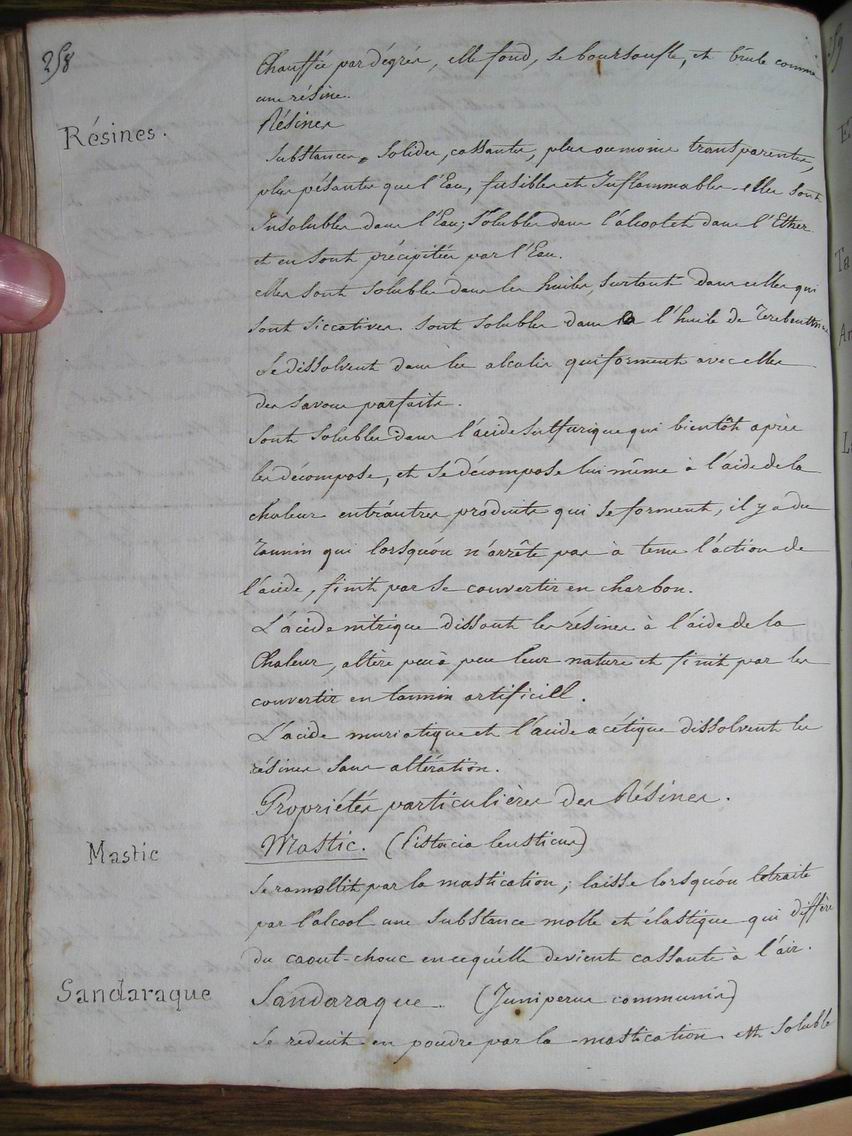 258
Chauffée par dégrés, elle fond, se boursoufle, et brule comme
une résine.
Résines.
Résines
Substances solides, cassantes, plus ou moins transparentes,
plus pésantes que l'Eau, fusibles et Inflammables. elles sont
Insolubles dans l'Eau; Solubles dans l'alcool et dans l'Ether
et en sont précipitées par l'Eau.
elles sont solubles dans les huiles surtout dans celles qui
sont siccatives. sont solubles dans l'huile de Terebentine
se dissolvent dans les alcalis qui forment avec elles
des savons parfaits.
sont solubles dans l'acide sulfurique qui bientôt après
les décompose, et se décompose lui même à l'aide de la
chaleur entrautres produits qui se forment, il y a du
Tannin qui lorsquón n'arrête pas à tems l'action de
l'acide, finit par se convertir en charbon.
L'acide nitrique dissout les résines à l'aide de la
Chaleur, altère peu à peu leur nature et finit par les
convertir en tannin artificiell.
L'acide muriatique et l'acide acétique dissolvent les
résines sans altération.
Propriétés particulières des Résines.
Mastic
Mastic. (Pistacia lentiscus)
se ramollit par la mastication; laisse lorsquón le traite
par l'alcool une substance molle et élastique qui diffère
du caout-chouc en ce qu'elle devient cassante à l'air.
Sandaraque
Sandaraque. (Juniperus communis)
Se reduit en poudre par la mastication est soluble